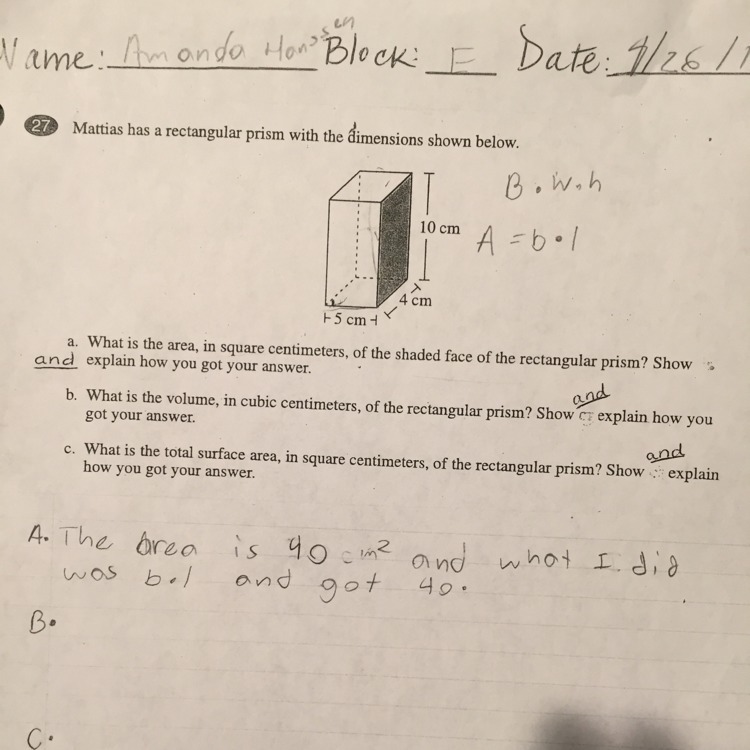 en
Name: Amanda Hanss Block: E Date: 4/26/1
27 Mattias has a rectangular prism with the dimensions shown below.
B.w.h
10 cm
A = b•l
4 cm
5 cm
a. What is the area, in square centimeters, of the shaded face of the rectangular prism? Show
and explain how you got your answer.
and
b. What is the volume, in cubic centimeters, of the rectangular prism? Show explain how you
got your answer.
and
c. What is the total surface area, in square centimeters, of the rectangular prism? Show explain
how you got your answer.
A. The area is 40 cm² and what I did
was b.l and got 40.
B.
C.